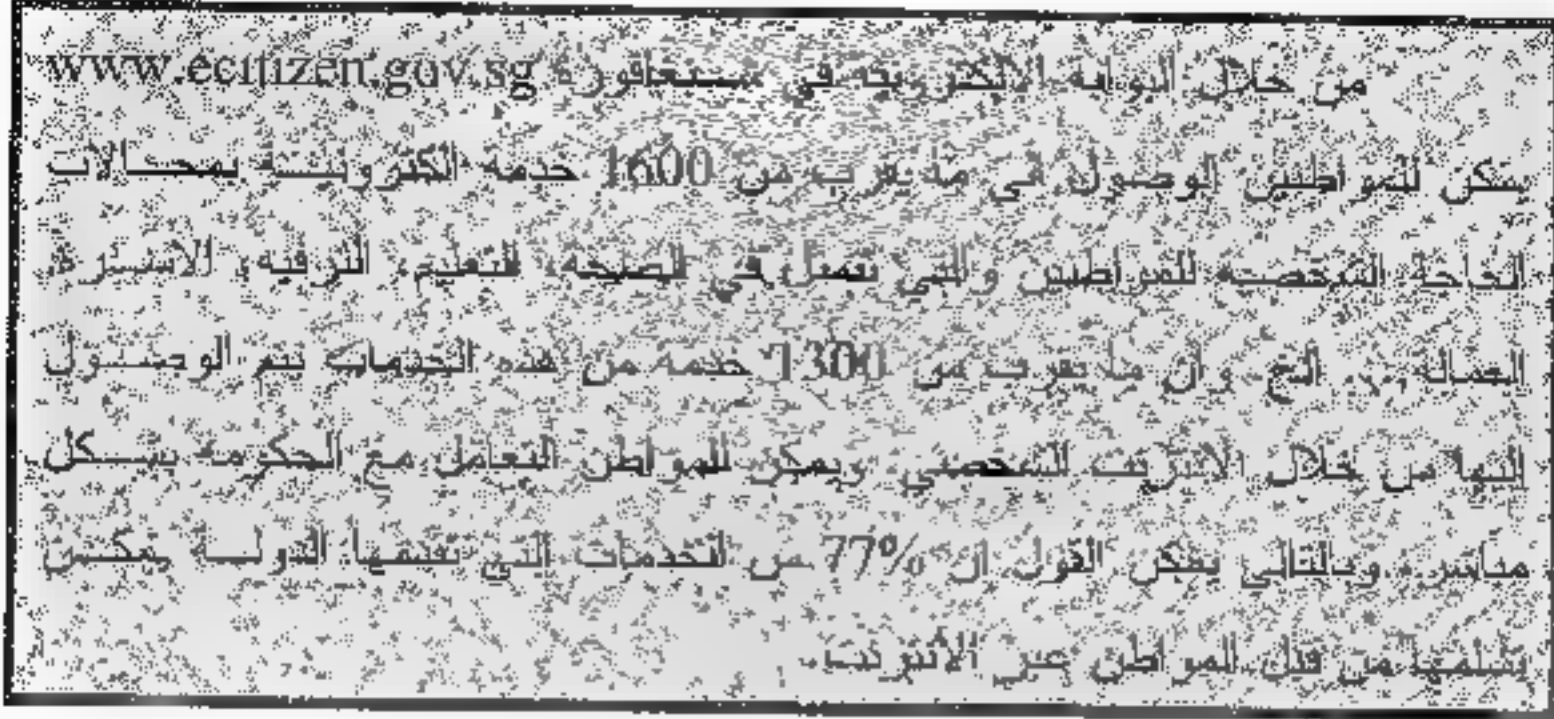 من خلال البوابة الإلكترونية في سنغافورة www.ecitizen.gov.sg
يمكن للمواطنين الوصول إلى ما يقرب من 1600 خدمة الكترونية بمجالات
الحاجة الشخصية للمواطنين والتي تتمثل في الصحة، التعليم، الترفيه، الأسرة،
العمالة ... الخ، وان ما يقرب من 1300 خدمة من هذه الخدمات يتم الوصول
إليها من خلال الانترنت الشخصي، ويمكن للمواطن التعامل مع الحكومة بشكل
مباشر، وبالتالي يمكن القول ان 77% من الخدمات التي تقدمها الدولة يمكن
تسلمها من قبل المواطن عبر الأنترنت.